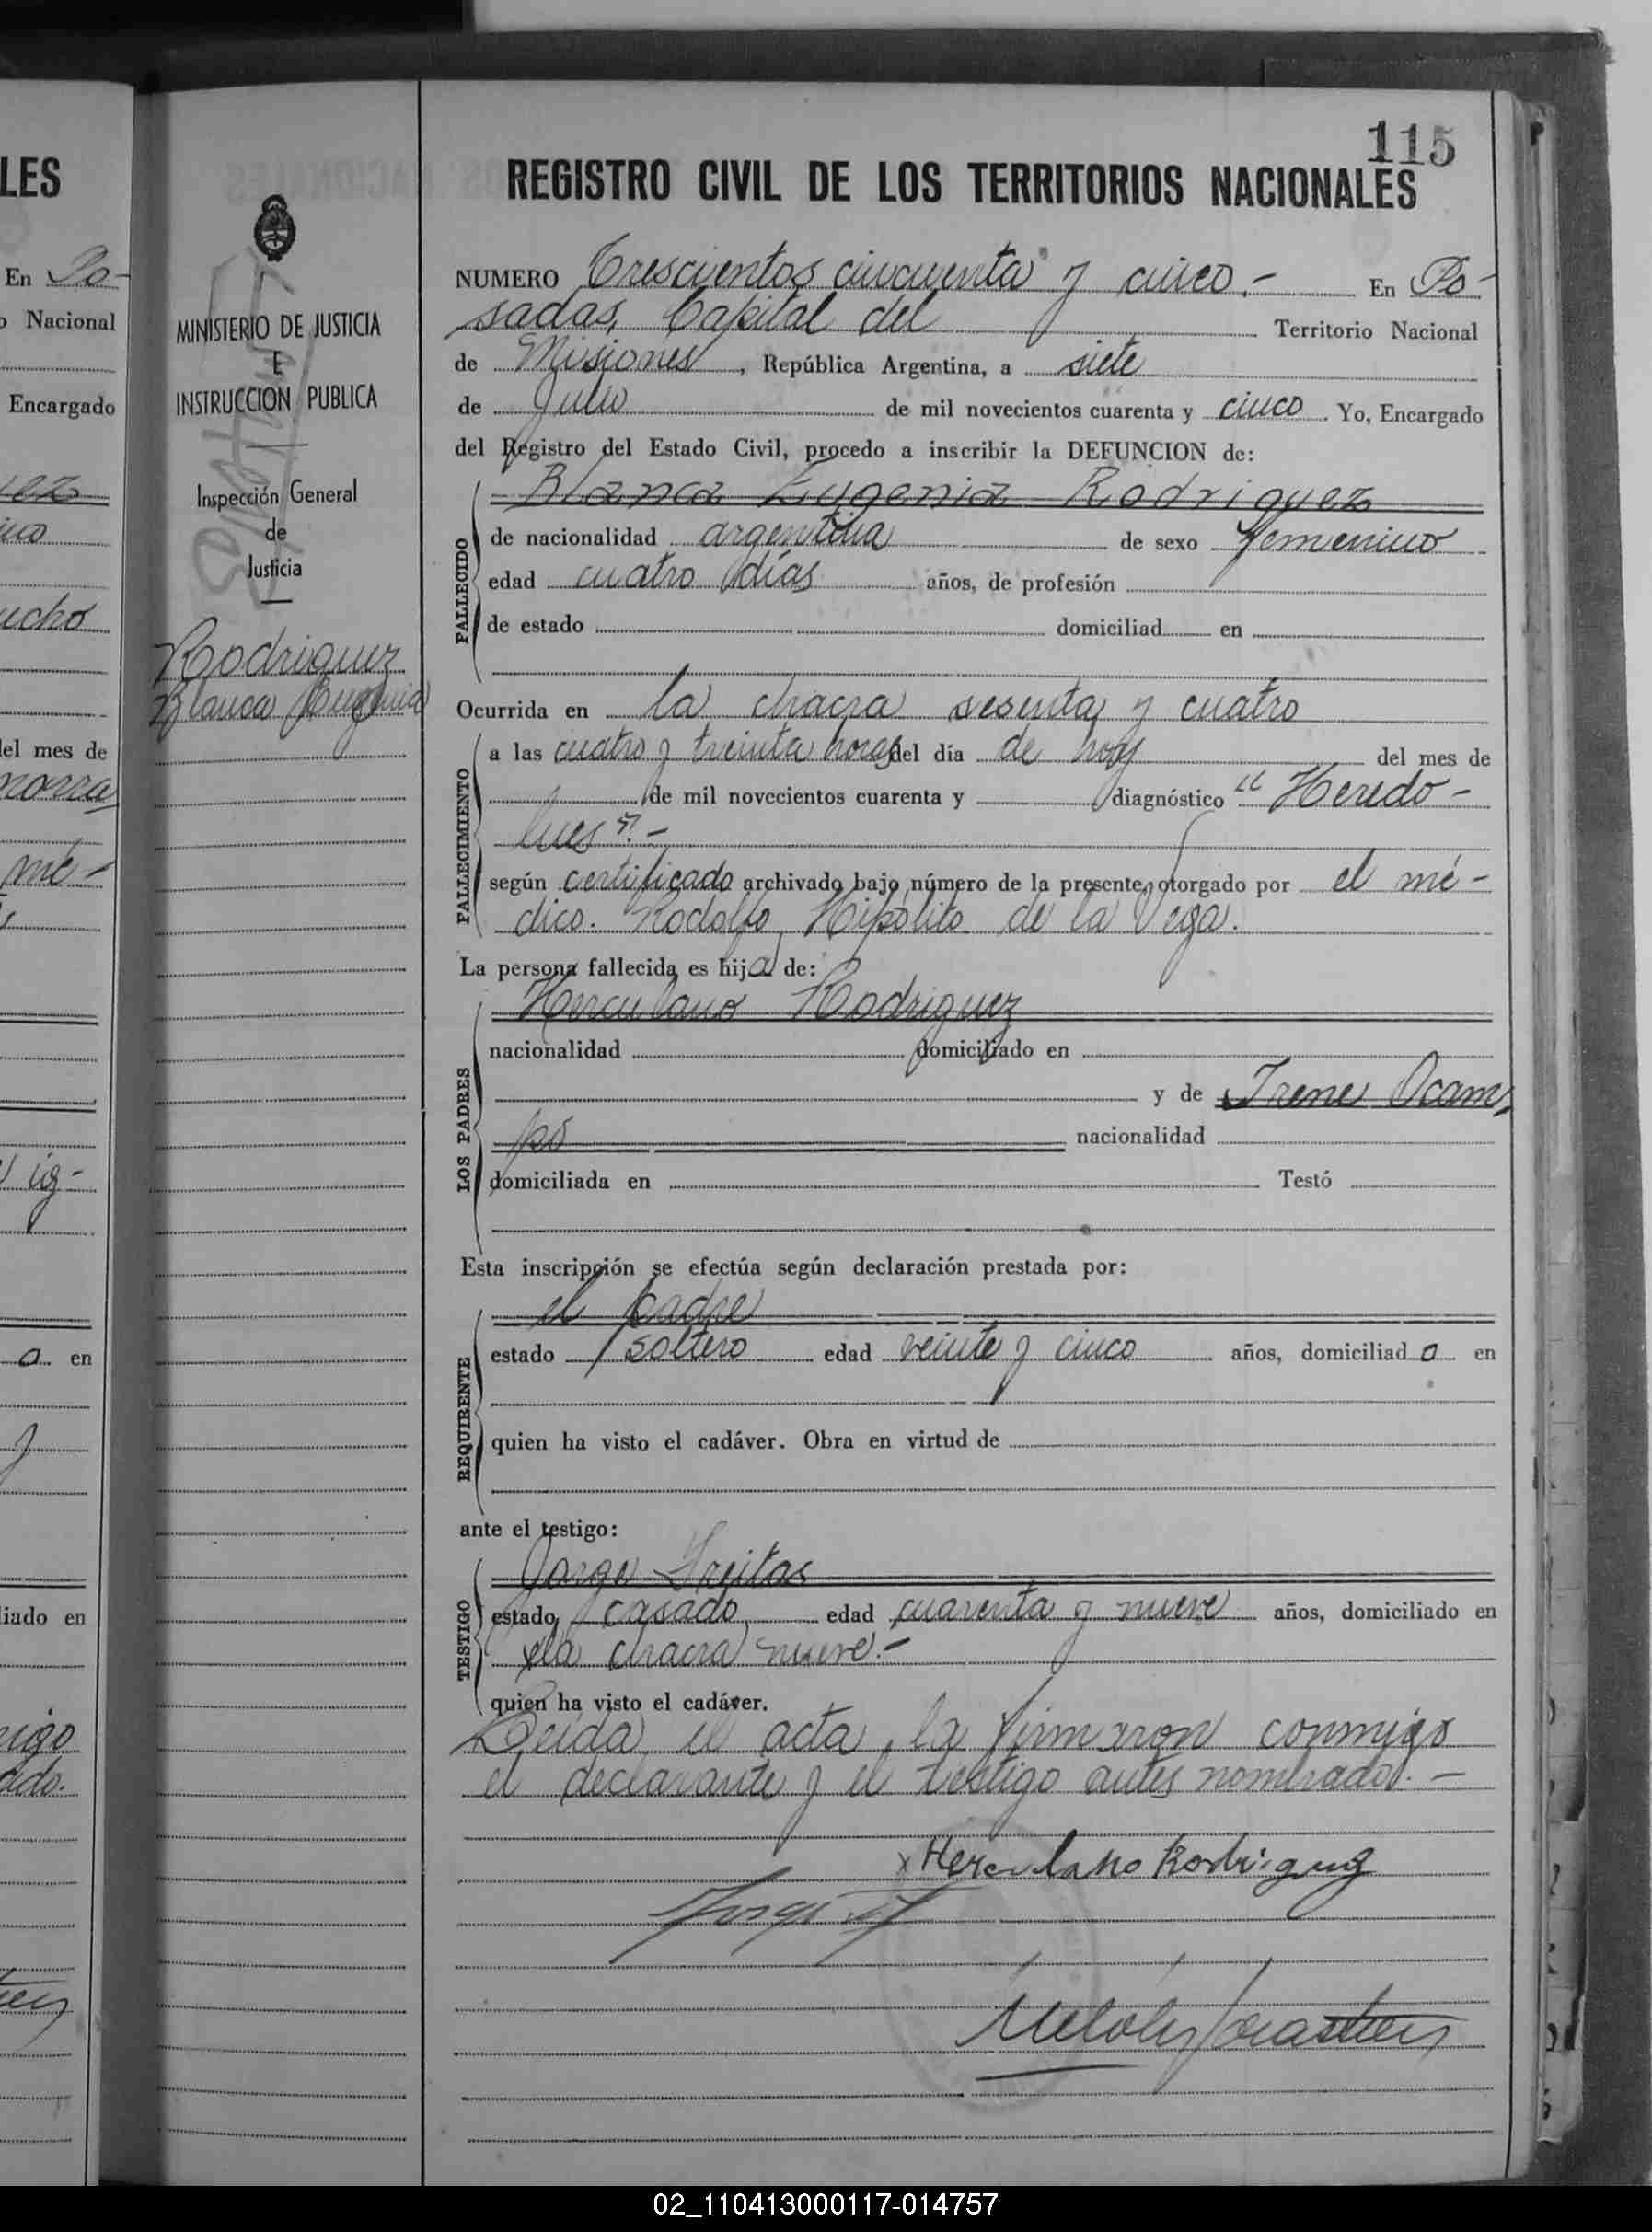 115
REGISTRO CIVIL DE LOS TERRITORIOS NACIONALES
MINISTERIO DE JUSTICIA
E
INSTRUCCION PUBLICA
Inspección General
de
Justicia
Rodriguez
Blanca Eugenia
NUMERO Trescientos cincuenta y cinco.- En Po-
sadas, Capital del Territorio Nacional
de Misiones, República Argentina, a siete
de Julio de mil novecientos cuarenta y cinco. Yo, Encargado
del Registro del Estado Civil, procedo a inscribir la DEFUNCION de:
Blanca Eugenia Rodriguez
FALLECIDO
de nacionalidad argentina de sexo femenino
edad cuatro días años, de profesión
de estado domiciliad en
Ocurrida en la chacra sesenta y cuatro
FALLECIMIENTO
a las cuatro y treinta horas del día de hoy del mes de
de mil novecientos cuarenta y diagnóstico "Heredo-
lues".-
según certificado archivado bajo número de la presente, otorgado por el mé-
dico. Rodolfo Hipólito de la Vega.
La persona fallecida es hija de:
LOS PADRES
Herculano Rodriguez
nacionalidad domiciliado en
y de Irene Ocam-
po nacionalidad
domiciliada en Testó
Esta inscripción se efectúa según declaración prestada por:
REQUIRENTE
el padre
estado soltero edad veinte y cinco años, domiciliado en
quien ha visto el cadáver. Obra en virtud de
ante el testigo:
TESTIGO
Jorge Freitas
estado casado edad cuarenta y nueve años, domiciliado en
la chacra nueve.-
quien ha visto el cadáver.
Leida el acta, la firmaron conmigo
el declarante y el testigo antes nombrado.-
x Herculano Rodriguez
Jorge
LES
En Po-
o Nacional
Encargado
del mes de
mé-
ig-
o en
liado en
02_110413000117-014757